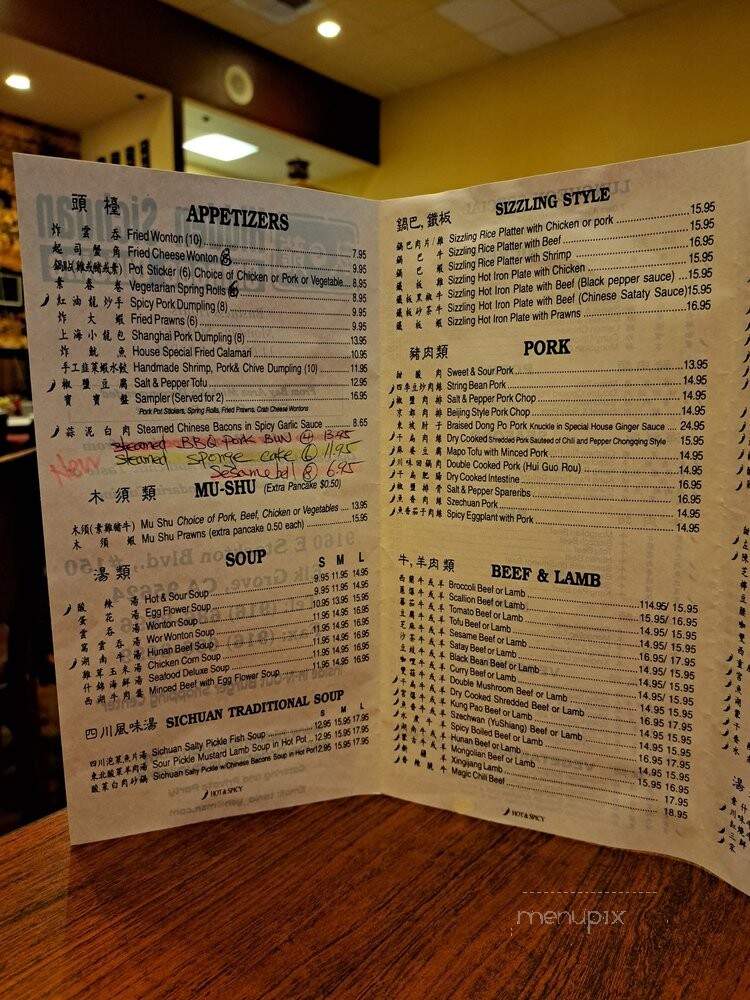 頭檯 APPETIZERS
炸雲吞 Fried Wonton (10) 7.95
起司蟹角 Fried Cheese Wonton 8 9.95
鍋貼(雞或豬或素) Pot Sticker (6) Choice of Chicken or Pork or Vegetable 8.95
素春卷 Vegetarian Spring Rolls 6 8.95
紅油龍抄手 Spicy Pork Dumpling (8) 9.95
炸大蝦 Fried Prawns (6) 9.95
上海小龍包 Shanghai Pork Dumpling (8) 13.95
炸魷魚 House Special Fried Calamari 10.95
手工韭菜蝦水餃 Handmade Shrimp, Pork& Chive Dumpling (10) 11.95
椒盬豆腐 Salt & Pepper Tofu 12.95
寶寶盤 Sampler (Served for 2) 16.95
Pork Pot Stickers, Spring Rolls, Fried Prawns, Crab Cheese Wontons
蒜泥白肉 Steamed Chinese Bacons in Spicy Garlic Sauce 8.65
Steamed BBQ Pork Bun 4 13.45
New Steamed sponge cake 6 11.95
Sesame ball 8 6.95
木須類 MU-SHU (Extra Pancake $0.50)
木須(素雞豬牛) Mu Shu Choice of Pork, Beef, Chicken or Vegetables 13.95
木須蝦 Mu Shu Prawns (extra pancake 0.50 each) 15.95
湯類 SOUP S M L
酸辣湯 Hot & Sour Soup 9.95 11.95 14.95
蛋花湯 Egg Flower Soup 9.95 11.95 14.95
雲吞湯 Wonton Soup 10.95 13.95 15.95
窩雲吞湯 Wor Wonton Soup 11.95 14.95 16.95
湖南牛湯 Hunan Beef Soup 11.95 14.95 16.95
雞茸玉米湯 Chicken Corn Soup 11.95 14.95 16.95
什錦海鮮湯 Seafood Deluxe Soup 11.95 14.95 16.95
西湖牛肉羹 Minced Beef with Egg Flower Soup 11.95 14.95 16.95
四川風味湯 SICHUAN TRADITIONAL SOUP
S M L
四川泡菜魚片湯 Sichuan Salty Pickle Fish Soup 12.95 15.95 17.95
東北酸菜羊肉湯 Sour Pickle Mustard Lamb Soup in Hot Pot 12.95 15.95 17.95
酸菜白肉砂鍋 Sichuan Salty Pickle w/Chinese Bacons Soup in Hot Pot 12.95 15.95 17.95
HOT & SPICY
鍋巴, 鐵板 SIZZLING STYLE
鍋巴肉片/雞 Sizzling Rice Platter with Chicken or pork 15.95
鍋巴牛 Sizzling Rice Platter with Beef 15.95
鍋巴蝦 Sizzling Rice Platter with Shrimp 16.95
鐵板雞 Sizzling Hot Iron Plate with Chicken 15.95
鐵板黑椒牛 Sizzling Hot Iron Plate with Beef (Black pepper sauce) 15.95
鐵板砂茶牛 Sizzling Hot Iron Plate with Beef (Chinese Sataty Sauce) 15.95
鐵板蝦 Sizzling Hot Iron Plate with Prawns 16.95
豬肉類 PORK
甜酸肉 Sweet & Sour Pork 13.95
四季豆炒肉絲 String Bean Pork 14.95
椒鹽肉排 Salt & Pepper Pork Chop 14.95
京都肉排 Beijing Style Pork Chop 14.95
東坡肘子 Braised Dong Po Pork Knuckle in Special House Ginger Sauce 24.95
干扁肉絲 Dry Cooked Shredded Pork Sauteed of Chili and Pepper Chongqing Style 15.95
麻婆豆腐 Mapo Tofu with Minced Pork 14.95
川味回鍋肉 Double Cooked Pork (Hui Guo Rou) 14.95
干扁肥腸 Dry Cooked Intestine 16.95
椒鹽排骨 Salt & Pepper Spareribs 16.95
魚香肉絲 Szechuan Pork 14.95
魚香茄子肉絲 Spicy Eggplant with Pork 14.95
牛, 羊肉類 BEEF & LAMB
西蘭牛或羊 Broccoli Beef or Lamb 114.95/ 15.95
蔥爆牛或羊 Scallion Beef or Lamb 15.95/ 16.95
蕃茄牛或羊 Tomato Beef or Lamb 14.95/ 15.95
豆腐牛或羊 Tofu Beef or Lamb 14.95/ 15.95
芝麻牛或羊 Sesame Beef or Lamb 16.95/ 17.95
沙茶牛或羊 Satay Beef or Lamb 14.95/ 15.95
豆豉牛或羊 Black Bean Beef or Lamb 14.95/ 15.95
咖喱牛或羊 Curry Beef or Lamb 14.95/ 15.95
雙菇牛或羊 Double Mushroom Beef or Lamb 14.95/ 15.95
干扁牛或羊 Dry Cooked Shredded Beef or Lamb 16.95 17.95
宮爆牛或羊 Kung Pao Beef or Lamb 14.95 15.95
魚香牛或羊 Szechwan (YuShiang) Beef or Lamb 14.95 15.95
水煮牛或羊 Spicy Boiled Beef or Lamb 16.95 17.95
湖南牛或羊 Hunan Beef or Lamb 14.95 15.95
蒙古牛或羊 Mongolian Beef or Lamb 15.95 16.95
新疆羊 Xingjiang Lamb 17.95
香辣脆牛 Magic Chili Beef 18.95
HOT & SPICY
menupix